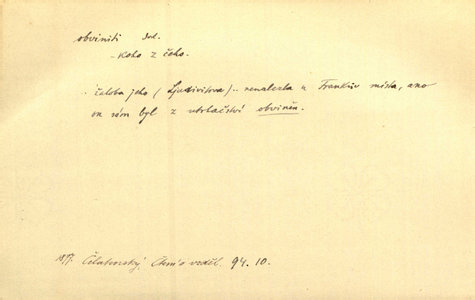 obviniti dok.
– koho z čeho.
.. žaloba jeho (Ljudevitova) .. nenalezla u Franków místa, ano
on sám byl z utrhačství obviněn.
1877. Čelakovský, Čtení o vzděl. 94. 10.